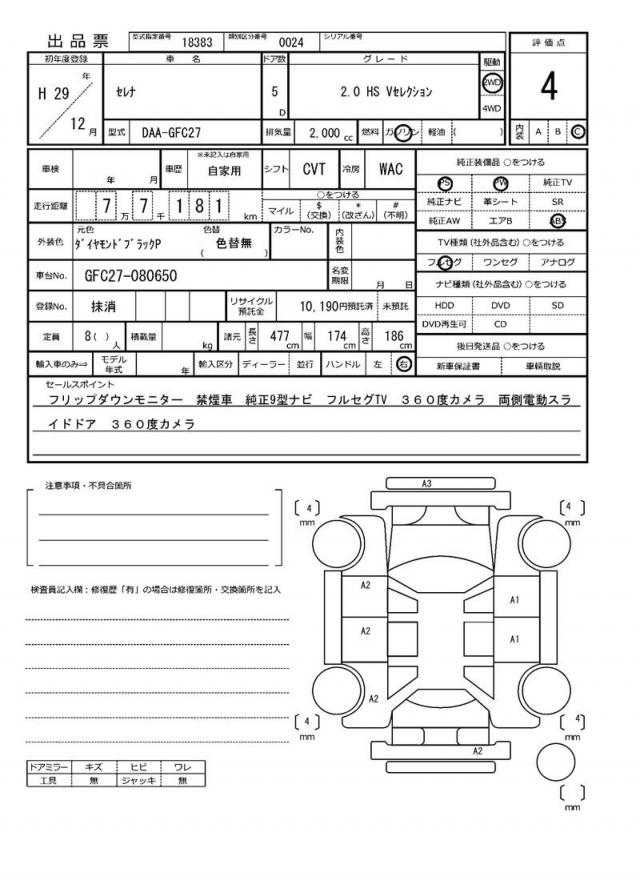 出品票 型式指定番号 18383 類別区分番号 0024 シリアル番号
初年度登録 車名 ドア数 グレード 駆動 評価点
H 29 年 12 月 セレナ 5 D 2.0 HS Vセレクション 2WD 4WD 4
型式 DAA-GFC27 排気量 2,000 cc 燃料 ガソリン 軽油 ( ) 内装 A B C
車検 年 月 車歴 ※未記入は自家用 自家用 シフト CVT 冷房 WAC 純正装備品 ○をつける
PS PW 純正TV
走行距離 7 万 7 千 1 8 1 km ○をつける 純正ナビ 革シート SR
マイル $ (交換) * (改ざん) # (不明) 純正AW エアB ABS
外装色 元色 色替 カラーNo. 内装色 TV種類(社外品含む) ○をつける
ダイヤモンドブラックP ( 色替無 ) フルセグ ワンセグ アナログ
車台No. GFC27-080650 名変期限 月 日 ナビ種類(社外品含む) ○をつける
登録No. 抹消 リサイクル預託金 10,190円預託済 未預託 HDD DVD SD
DVD再生可 CD
定員 8( ) 人 積載量 kg 諸元 長さ 477 cm 幅 174 cm 高さ 186 cm 後日発送品 ○をつける
輸入車のみ⇒ モデル年式 年 輸入区分 ディーラー 並行 ハンドル 左 右 新車保証書 車輌取説
セールスポイント
フリップダウンモニター 禁煙車 純正9型ナビ フルセグTV 360度カメラ 両側電動スラ
イドドア 360度カメラ
注意事項・不具合箇所
A3
4 mm 4 mm
検査員記入欄:修復歴「有」の場合は修復箇所・交換箇所を記入
A2 A1
A2 A1
A2
4 mm 4 mm
A2
ドアミラー キズ ヒビ ワレ
工具 無 ジャッキ 無
mm